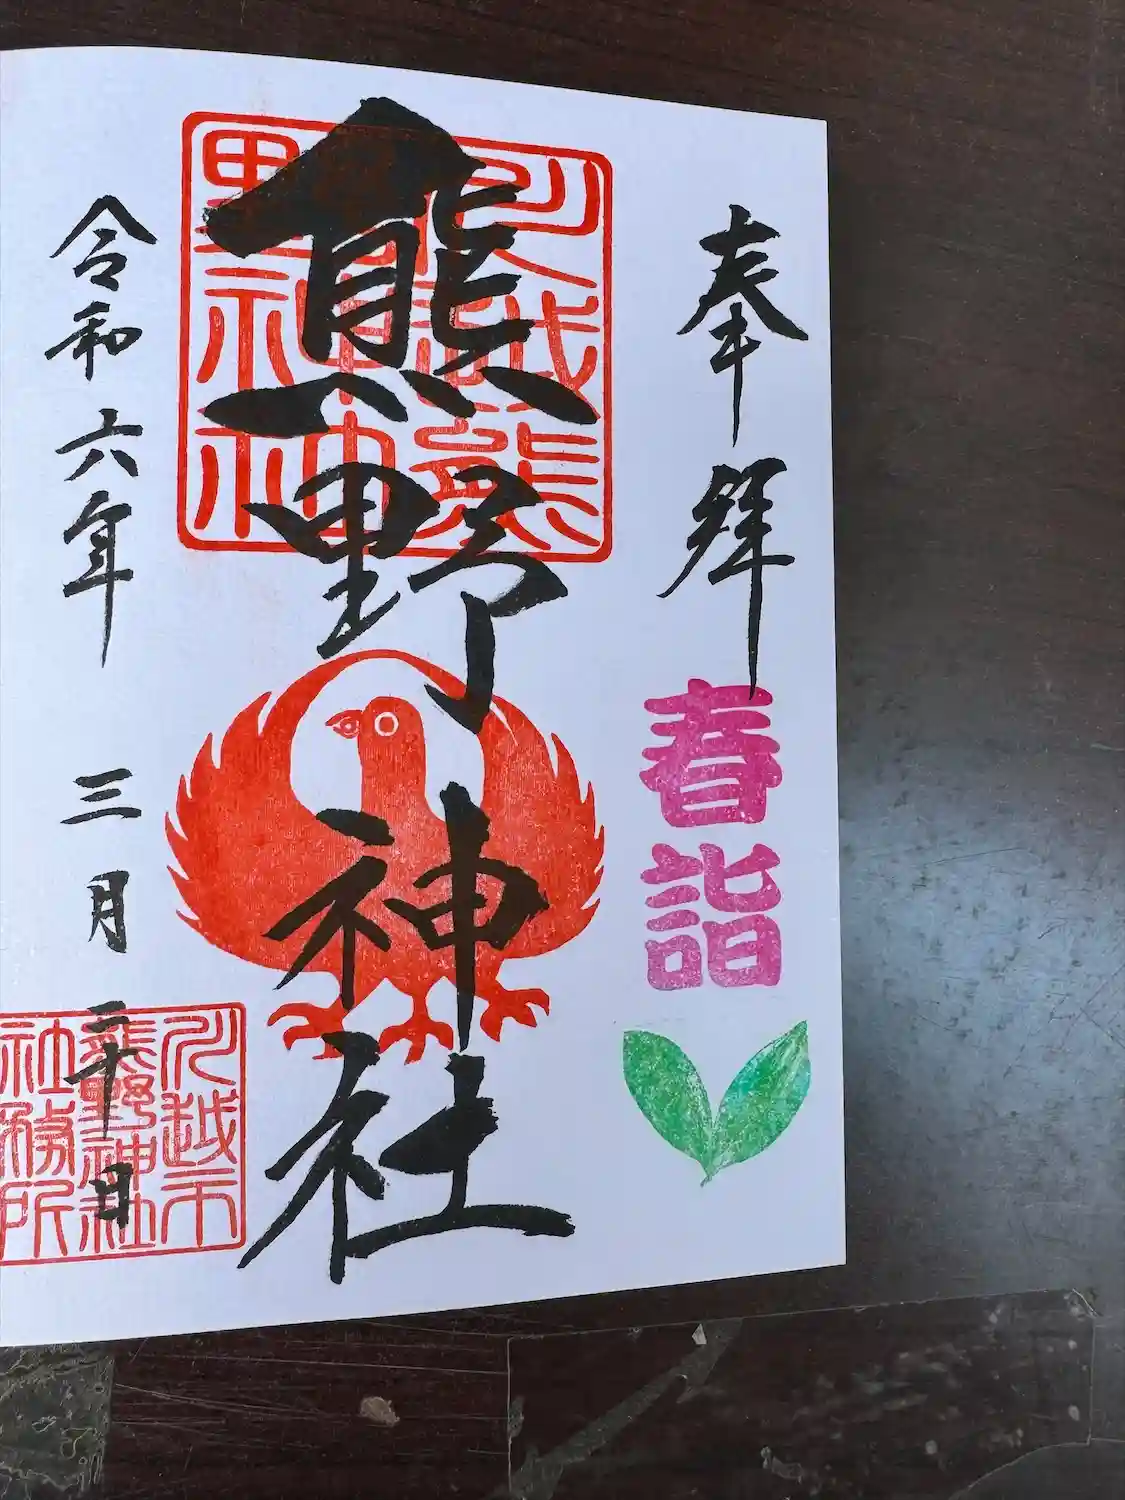 奉拝
春詣
熊野神社
川越
熊野神社
令和六年 三月 二十日
川越市
熊野神社
社務所